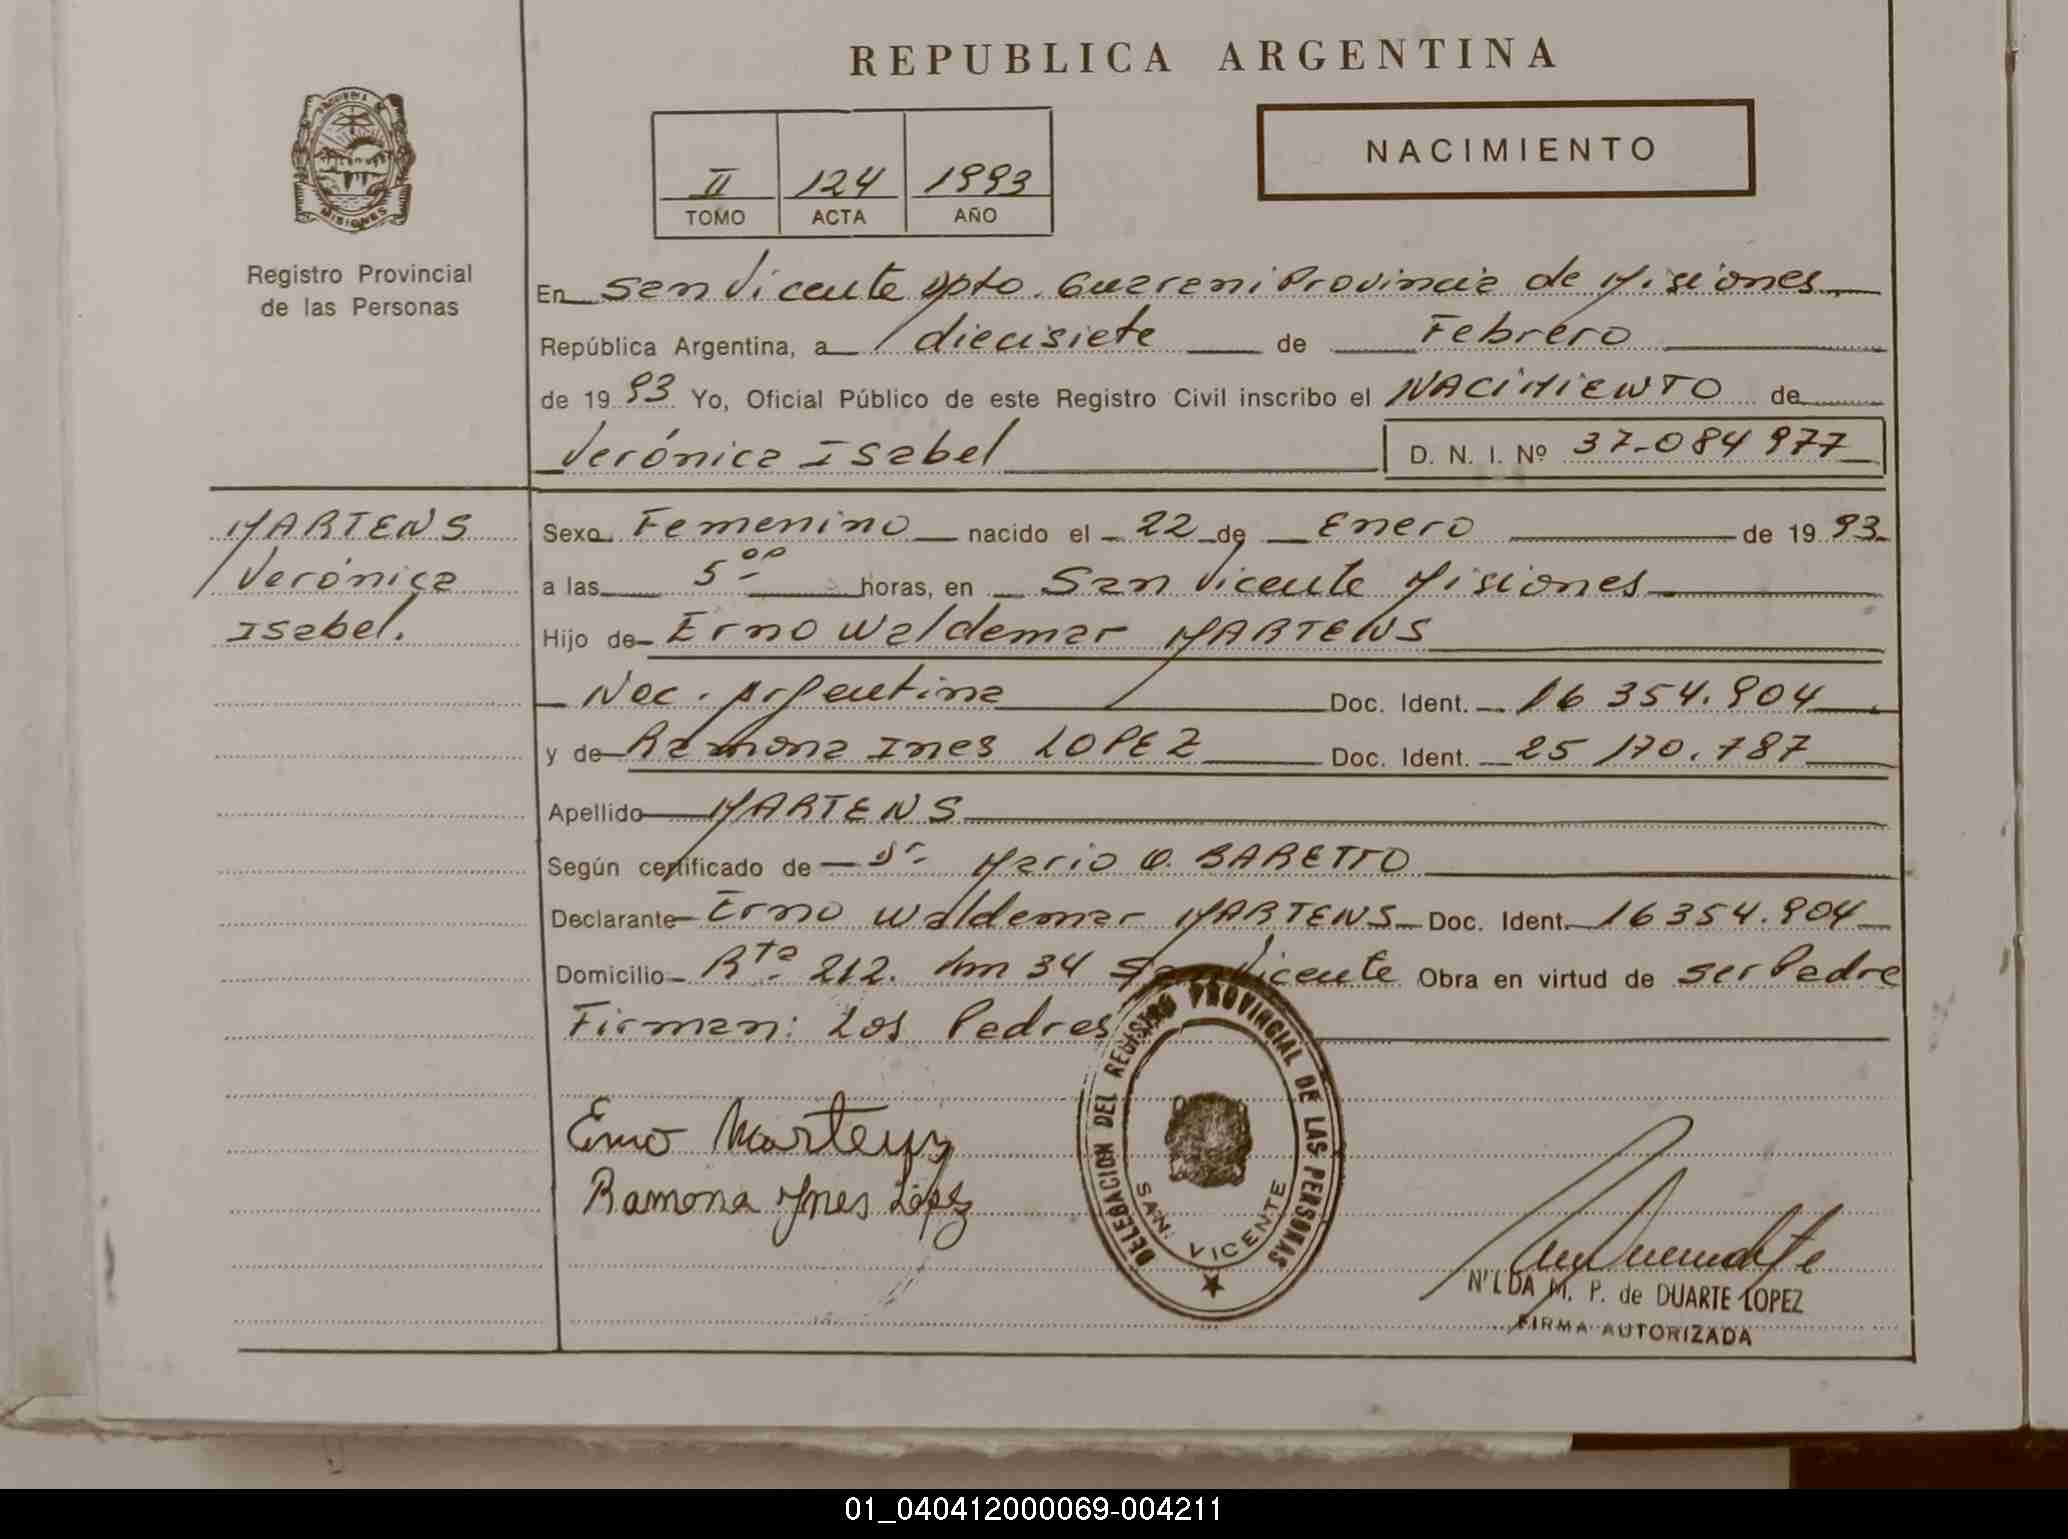 REPUBLICA ARGENTINA
NACIMIENTO
II 124 1993
TOMO ACTA AÑO
PROVINCIA DE MISIONES
Registro Provincial
de las Personas
En San Vicente Dpto. Guarani Provincia de Misiones
República Argentina, a diecisiete de Febrero
de 1993 Yo, Oficial Público de este Registro Civil inscribo el NACIMIENTO de
Verónica Isabel D. N. I. Nº 37-084 977
MARTENS
Verónica
Isabel.
Sexo Femenino nacido el 22 de Enero de 1993
a las 5 00 horas, en San Vicente Misiones
Hijo de Erno Waldemar MARTENS
Nac. Argentina Doc. Ident. 16 354.904
y de Ramona Ines LOPEZ Doc. Ident. 25 170.787
Apellido MARTENS
Según certificado de Dr. Mario O. BARETTO
Declarante Erno Waldemar MARTENS Doc. Ident. 16 354.904
Domicilio Rta 212. km 34 San Vicente Obra en virtud de ser Padre
Firman: Los Padres
Erno Martens
Ramona Ynes López
DELEGACION DEL REGISTRO PROVINCIAL DE LAS PERSONAS
SAN VICENTE
N'LDA M. P. de DUARTE LOPEZ
FIRMA AUTORIZADA
01_040412000069-004211